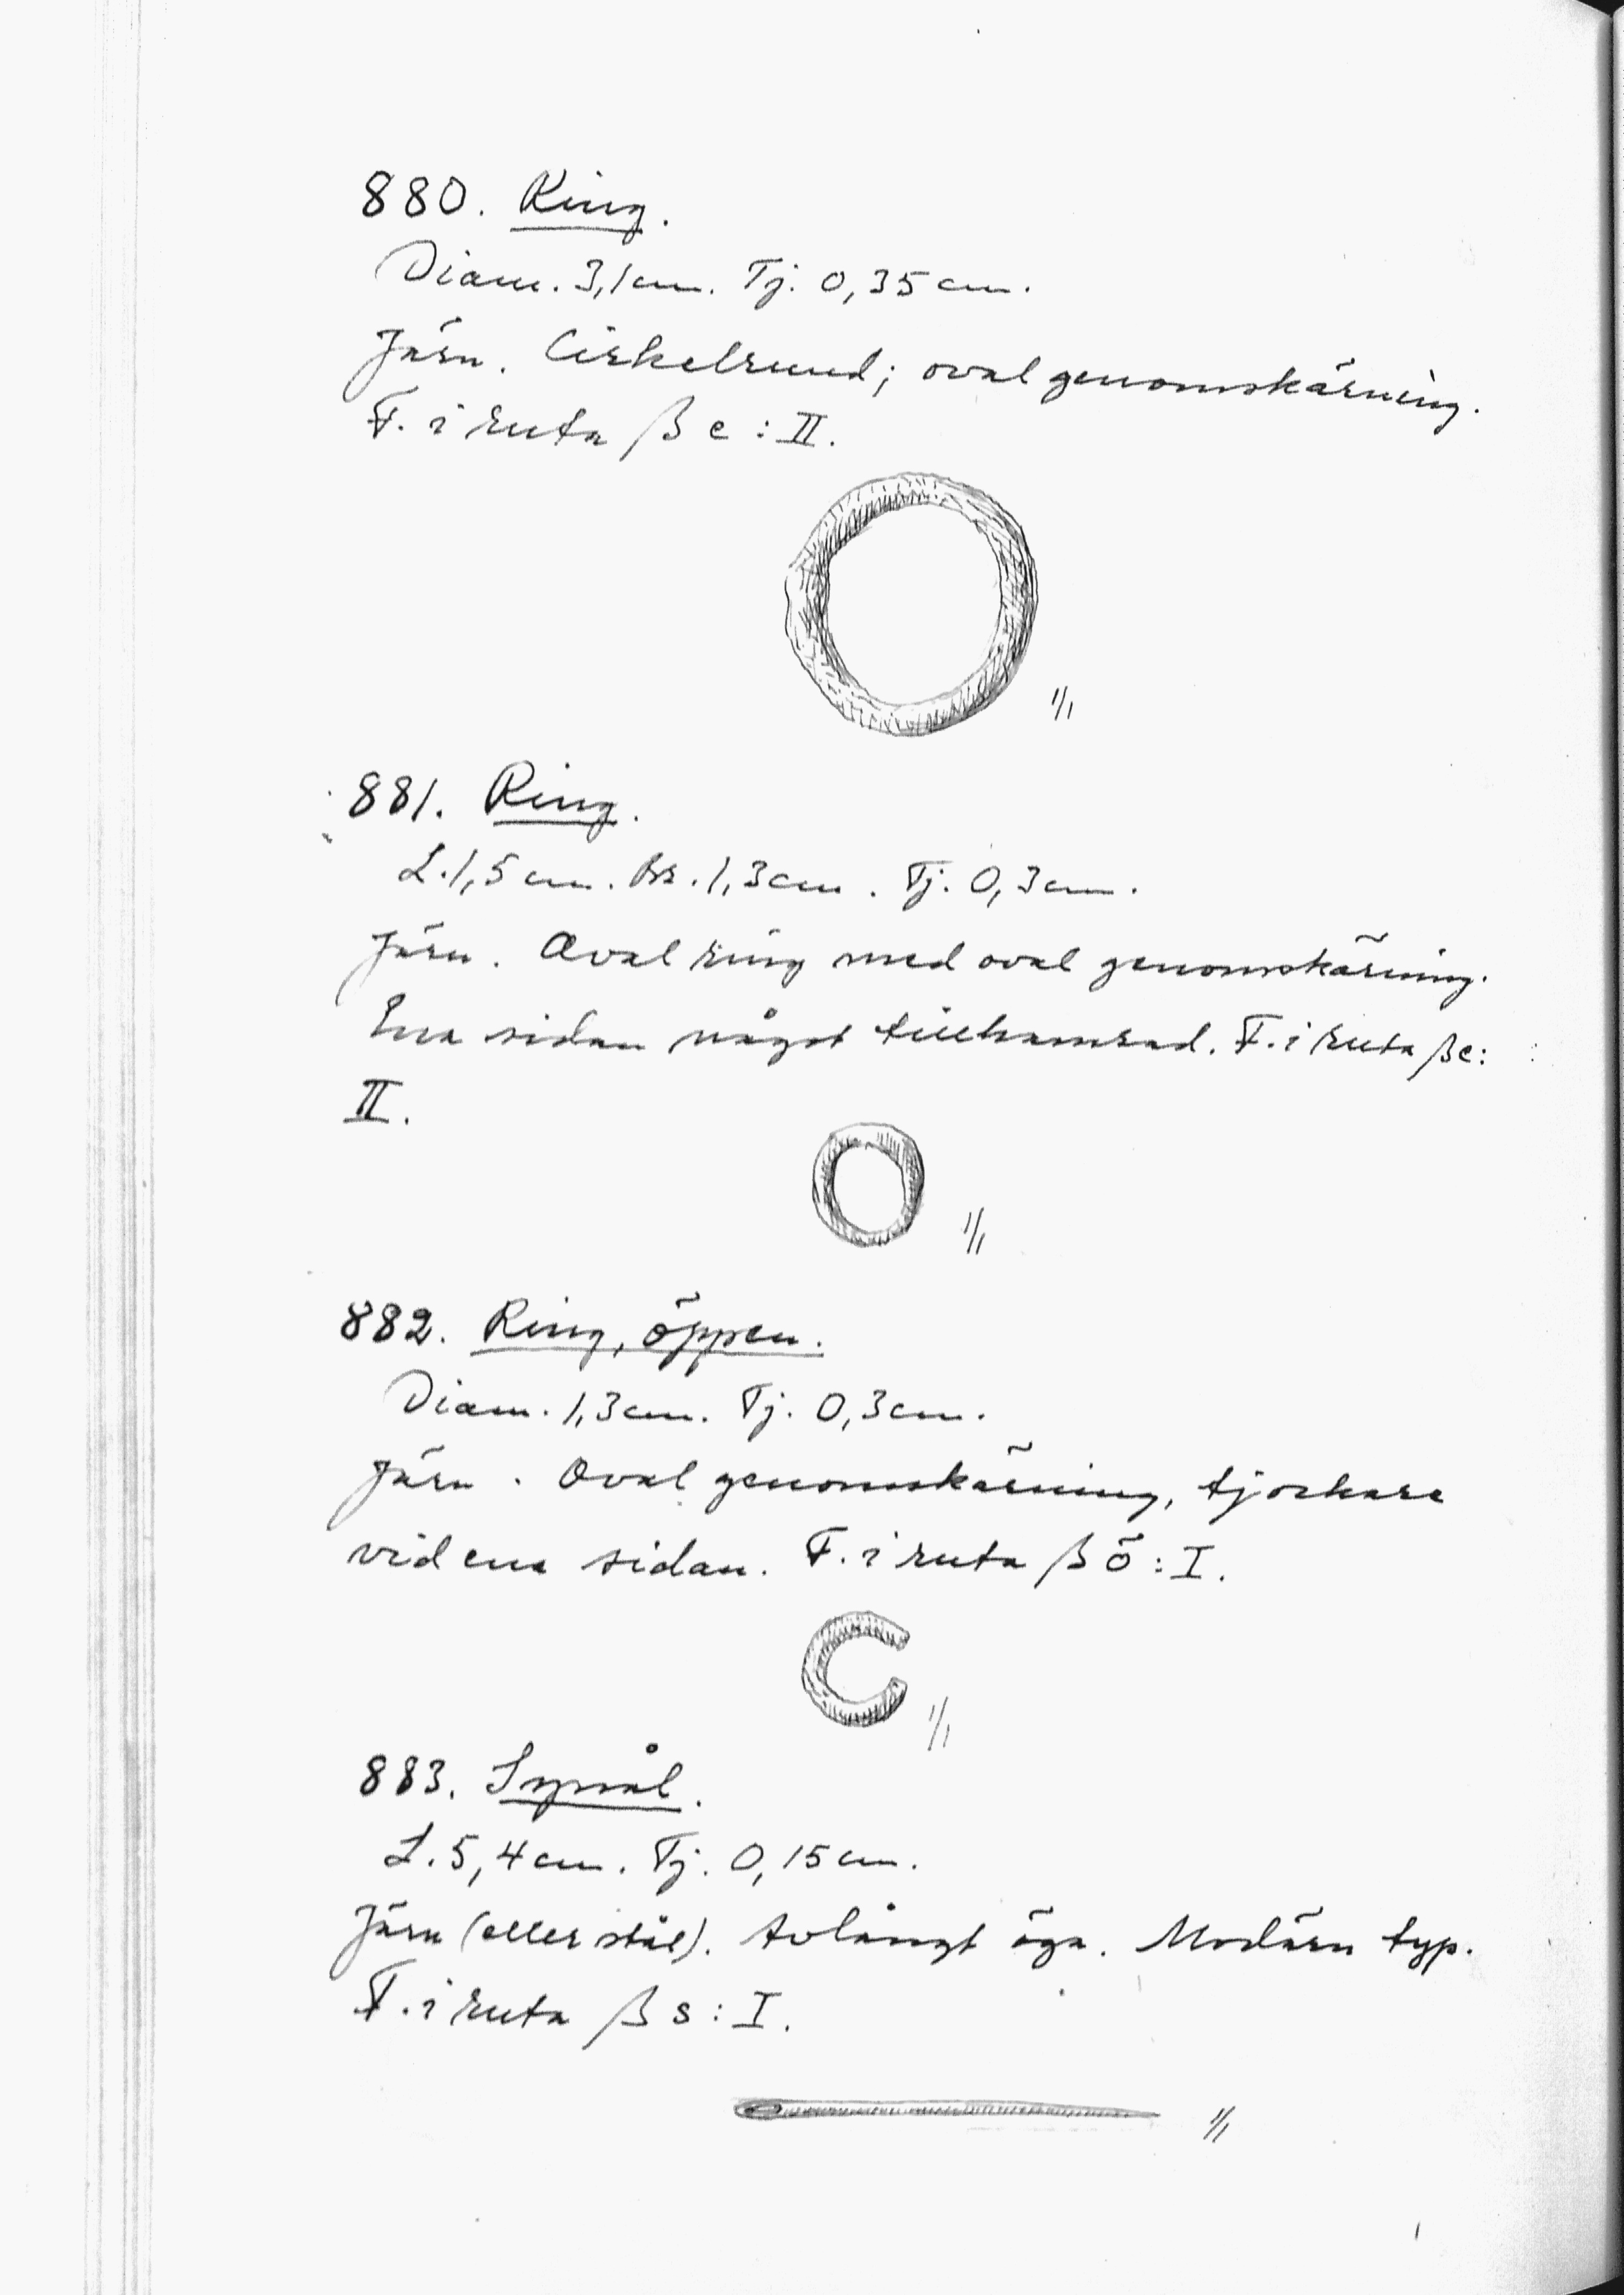 880. Ring.
Diam. 3,1 cm. Tj. 0,35 cm.
Järn. Cirkelrund; oval genomskärning.
F. i ruta β c : II.
1/1
881. Ring.
L. 1,5 cm. Br. 1,3 cm. Tj. 0,3 cm.
Järn. Oval ring med oval genomskärning.
Ena sidan något tillhamrad. F. i ruta β c :
II.
1/1
882. Ring, öppen.
Diam. 1,3 cm. Tj. 0,3 cm.
Järn. Oval genomskärning, tjockare
vid ena sidan. F. i ruta β ö : I.
1/1
883. Synål.
L. 5,4 cm. Tj. 0,15 cm.
Järn (eller stål). Avlångt öga. Modärn typ.
F. i ruta β s : I.
1/1